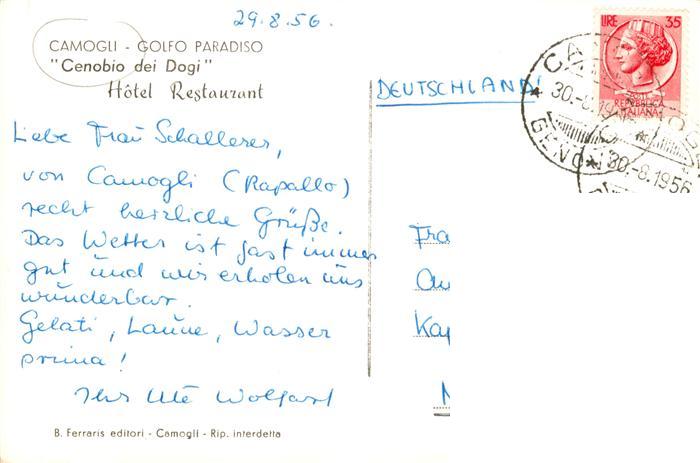 29.8.56.
CAMOGLI - GOLFO PARADISO
"Cenobio dei Dogi"
Hôtel Restaurant
Liebe Frau Schallerer,
von Camogli (Rapallo)
recht herzliche Grüße.
Das Wetter ist fast immer
gut und wir erholen uns
wunderbar.
Gelati, Laune, Wasser
prima!
Ihre Ute Wolfart
B. Ferraris editori - Camogli - Rip. interdetta
LIRE 35
POSTE
REPUBBLICA
ITALIANA
DEUTSCHLAND!
30.-8.19
GENO
30.-8.1956
Fra
Kap